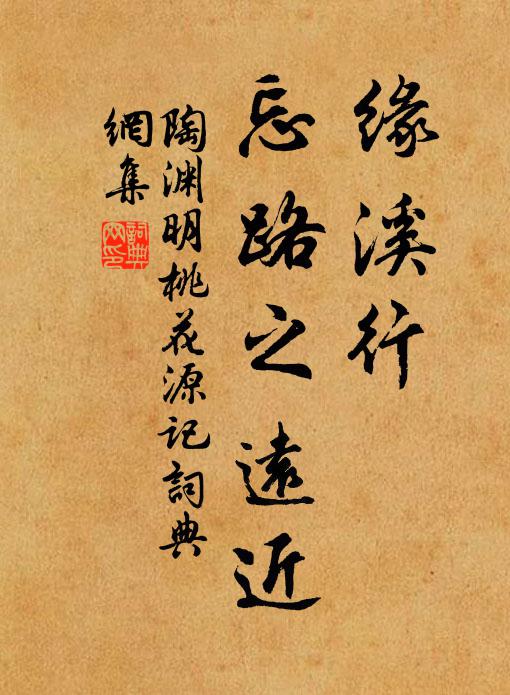 緣溪行
忘路之遠近
陶渊明桃花源记詞典
網集
詞典
网印